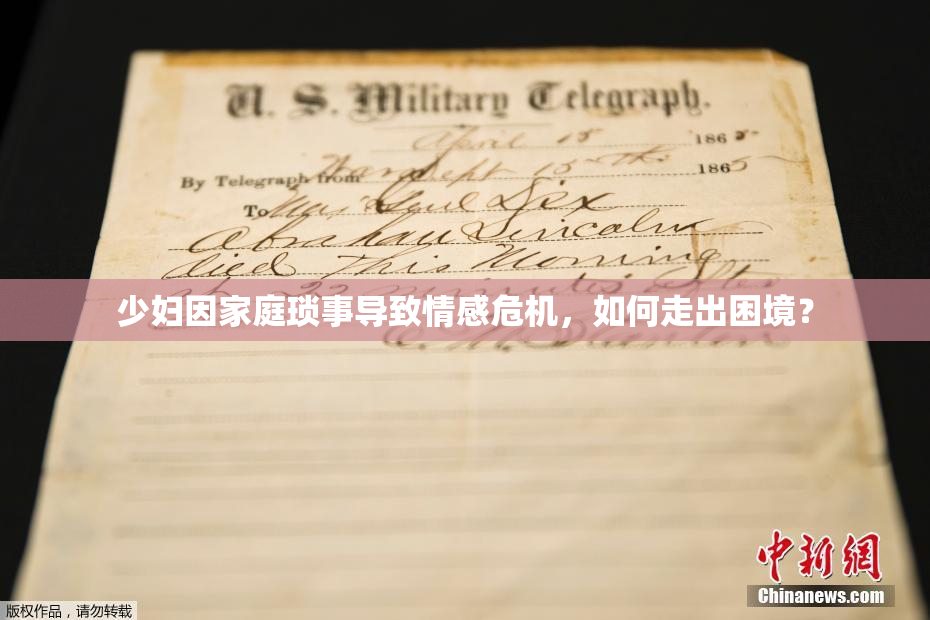 U. S. Military Telegraph.
April 15 1865
By Telegraph from War Dept 15th 1865
To Maj Genl Dix
Abraham Lincoln
died This Morning
at 22 minutes after
少妇因家庭琐事导致情感危机，如何走出困境？
E. M. Stanton
中新网
Chinanews.com
版权作品，请勿转载